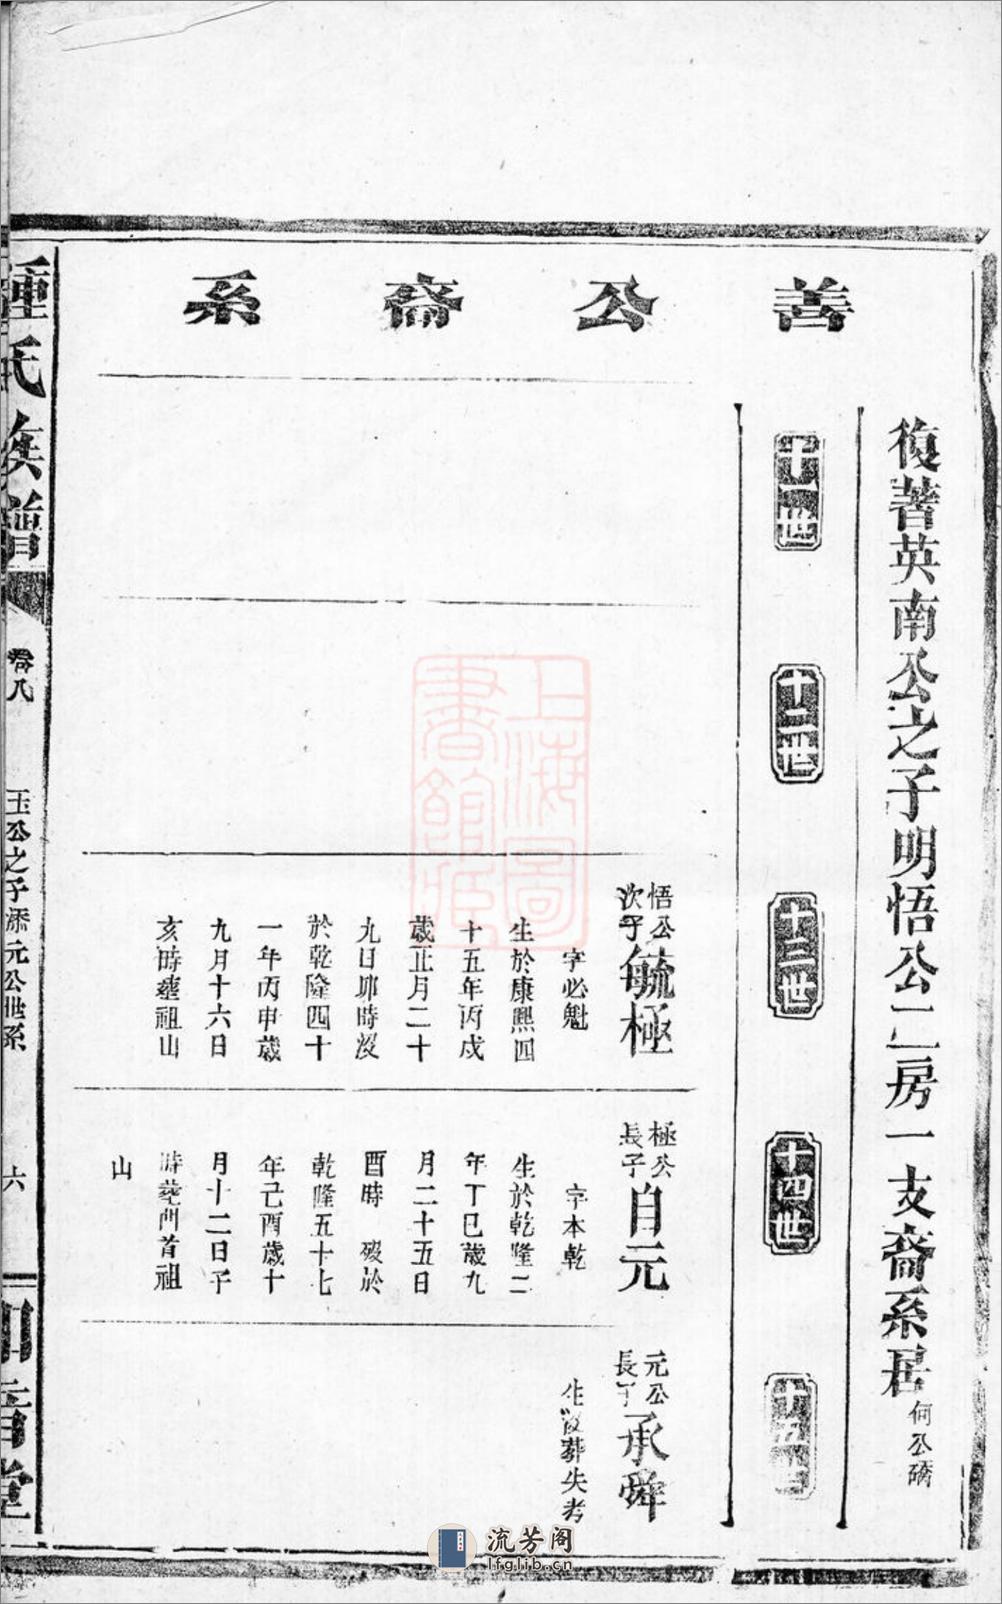 善公裔系
復著英南公之子明悟公二房一支裔系居何公磜
十一世
十二世
十三世
十四世
十五世
悟公
次子
毓極
字必魁
生於康熙四
十五年丙戌
歲正月二十
九日卯時歿
於乾隆四十
一年丙申歲
九月十六日
亥時葬祖山
極公
長子
自元
字本乾
生於乾隆二
年丁巳歲九
月二十五日
酉時 歿於
乾隆五十七
年己酉歲十
月十二日子
時葬門首祖
山
元公
長子
承舜
生歿葬失考
鍾氏族譜
卷八
玉公之子添元公世系
六
知音堂
上海圖
書館藏
流芳阁
lfglib.cn